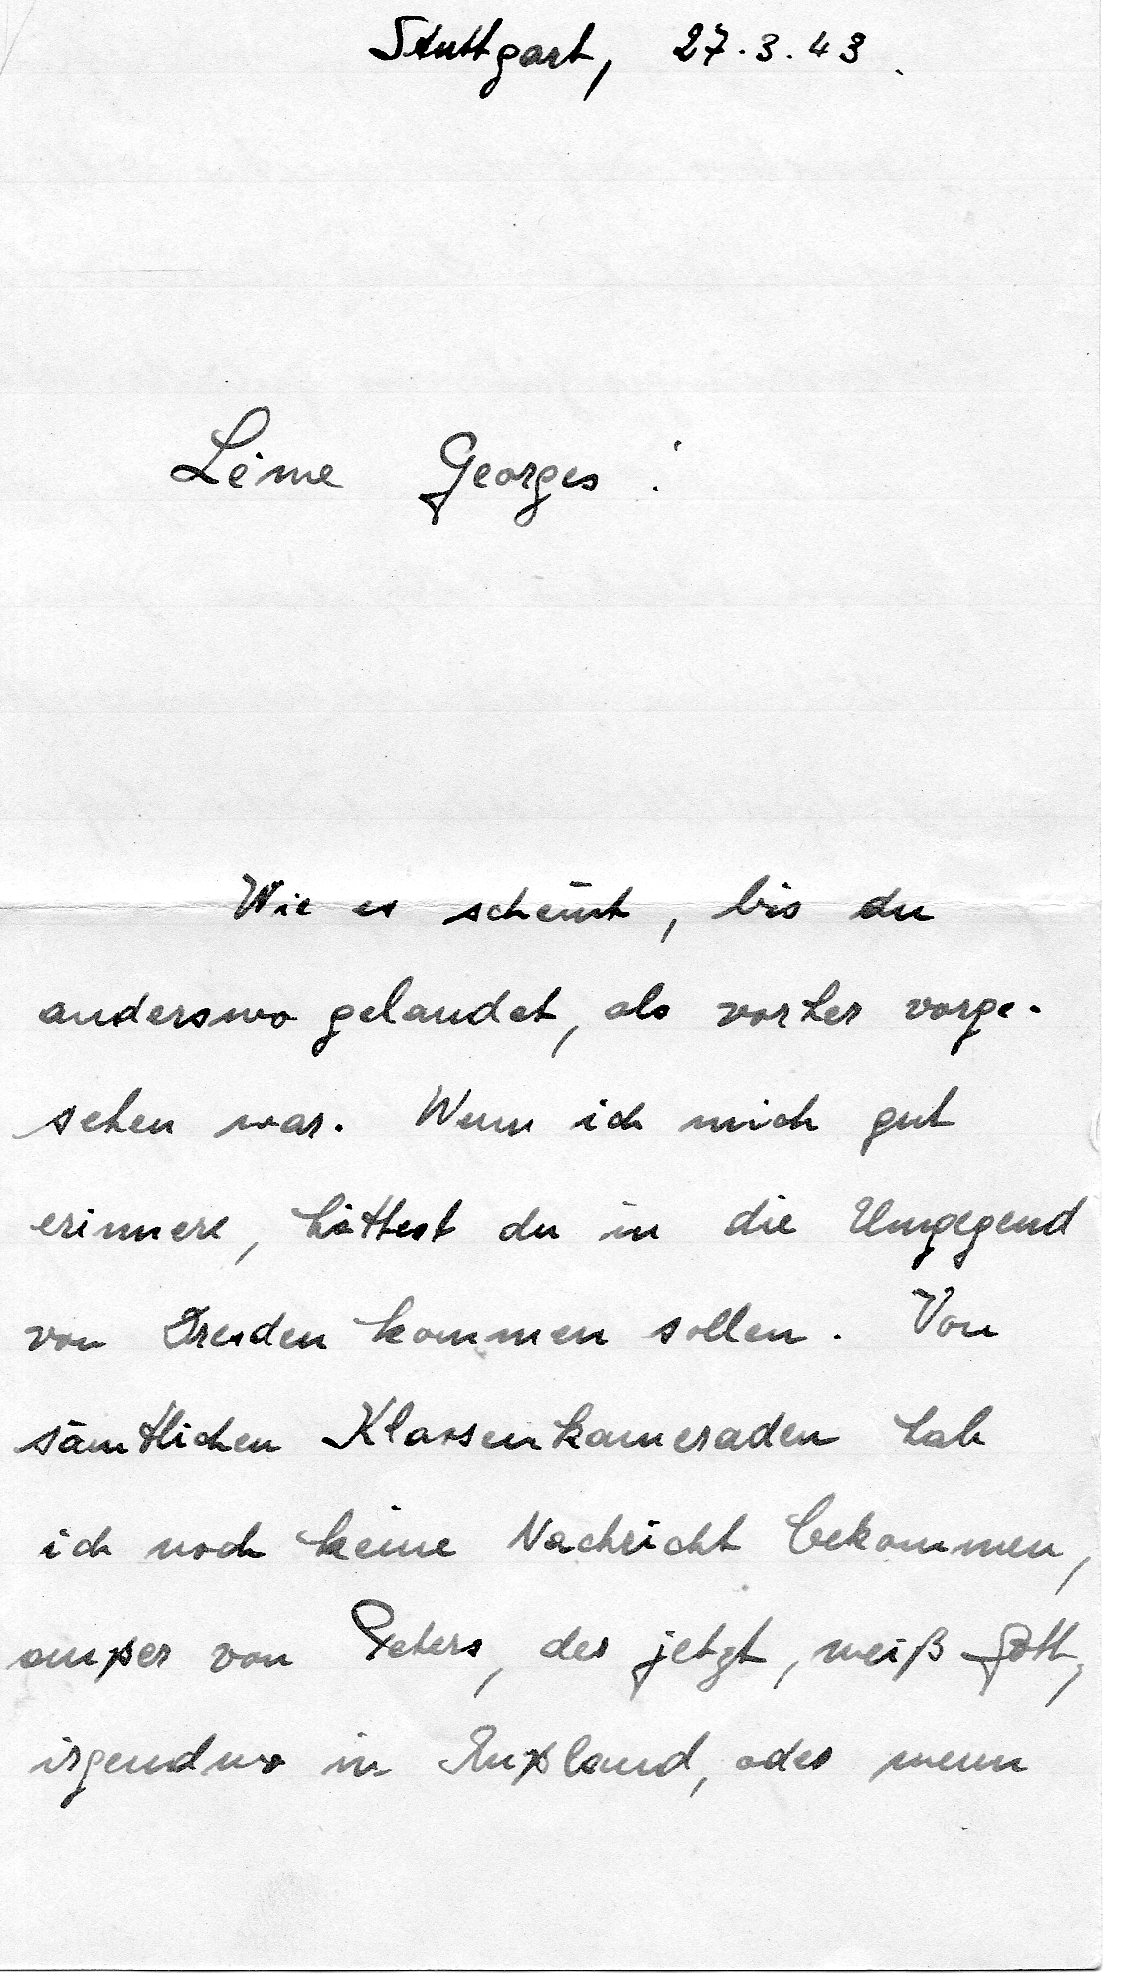 Stuttgart, 27.3.43.
Léine Georges!
Wie es scheint, bis du
anderswo gelandet, als vorher vorge-
sehen war. Wenn ich mich gut
erinnere, hättest du in die Umgegend
von Dresden kommen sollen. Von
sämtlichen Klassenkameraden hab
ich noch keine Nachricht bekommen,
außer von Peters, der jetzt, weiß Gott,
irgendwo in Rußland, oder wenn